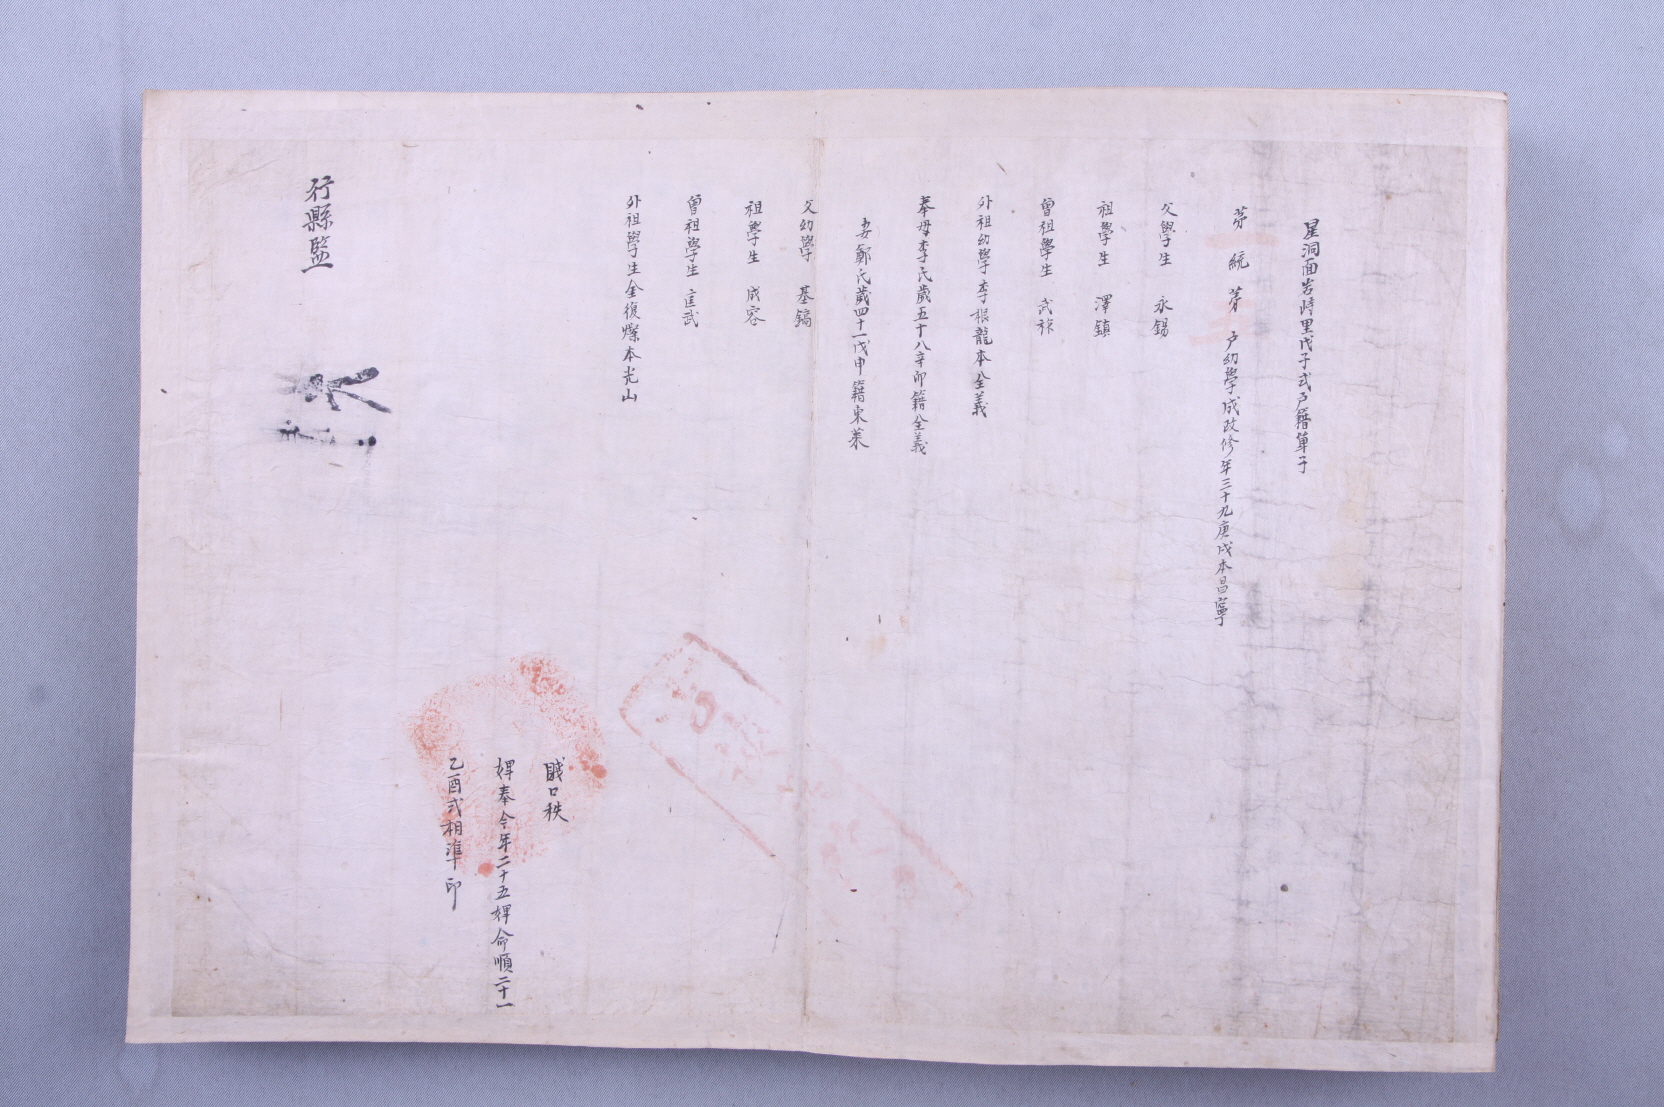 星洞面岩峙里戊子式戶籍單子
苐 二 統 苐 三 戶幼學成政修年三十九庚戌本昌寧
父學生 永錫
祖學生 澤鎮
曾祖學生 武祿
外祖幼學李根龍本全義
奉母李氏歲五十八辛卯籍全義
妻鄭氏歲四十一戊申籍東萊
父幼學 基鎬
祖學生 成容
曾祖學生 匡武
外祖學生金復爍本光山
賤口秩
婢奉今年二十五婢命順二十一
乙酉式相準印
行縣監